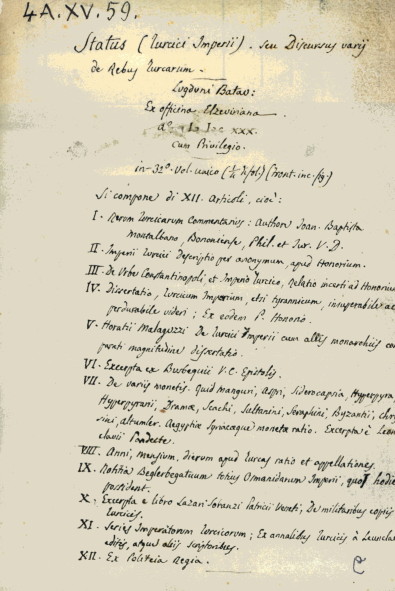 4A.XV.59.
Status (Turcici Imperii). seu Discursus varij
de Rebus Turcarum.
Lugduni Batav:
Ex officina Elzeviriana
aº. I. Ioc XXX.
cum Privilegio.
in-32º. Vol. unico (Front. inc.
Si compone di XII. Articoli, cioè:
I. Rerum Turcicarum Commentarius: Authore Joan. Baptista
Montalbano, Bononiense, Phil. et Jur. V. D.
II. Imperii Turcici Descriptio per anonymum, apud Honorium.
III. De Urbe Constantinopoli et Imperio Turcico, relatio incerti ad Honorium
IV. Dissertatio, Turcicum Imperium, etsi tyrannicum, insuperabile ac
perdurabile videri; Ex eodem P. Honorio.
V. Horatii Malaguzzi De Turcici Imperii cum aliis monarchiis com
parati magnitudine dissertatio.
VI. Excerpta ex Busbequii V. C. Epistolis.
VII. De variis monetis. Quid manguri, Aspri, Siderocapsia, Hyperpyra,
Hyperpyrarii, Dramæ, Scachi, Sultanini, Seraphini, Byzantii, chry
sini, altumler. Aegyptiæ Syriacæque monetæ ratio. Excerpta è Leon
clavii Pandecte.
VIII. Anni, mensium, dierum apud Turcas ratio et appellationes.
IX. Notitia Beglerbegatuum totius Osmanidarum Imperii, quos hodie
possident.
X. Excerpta e libro Lazari Soranzi Patricii Veneti, De militaribus copiis
Turcicis.
XI. Series Imperatorum Turcicorum; Ex annalibus Turcicis à Leunclav
editis, atque aliis scriptoribus.
XII. Ex Politeia Regia.